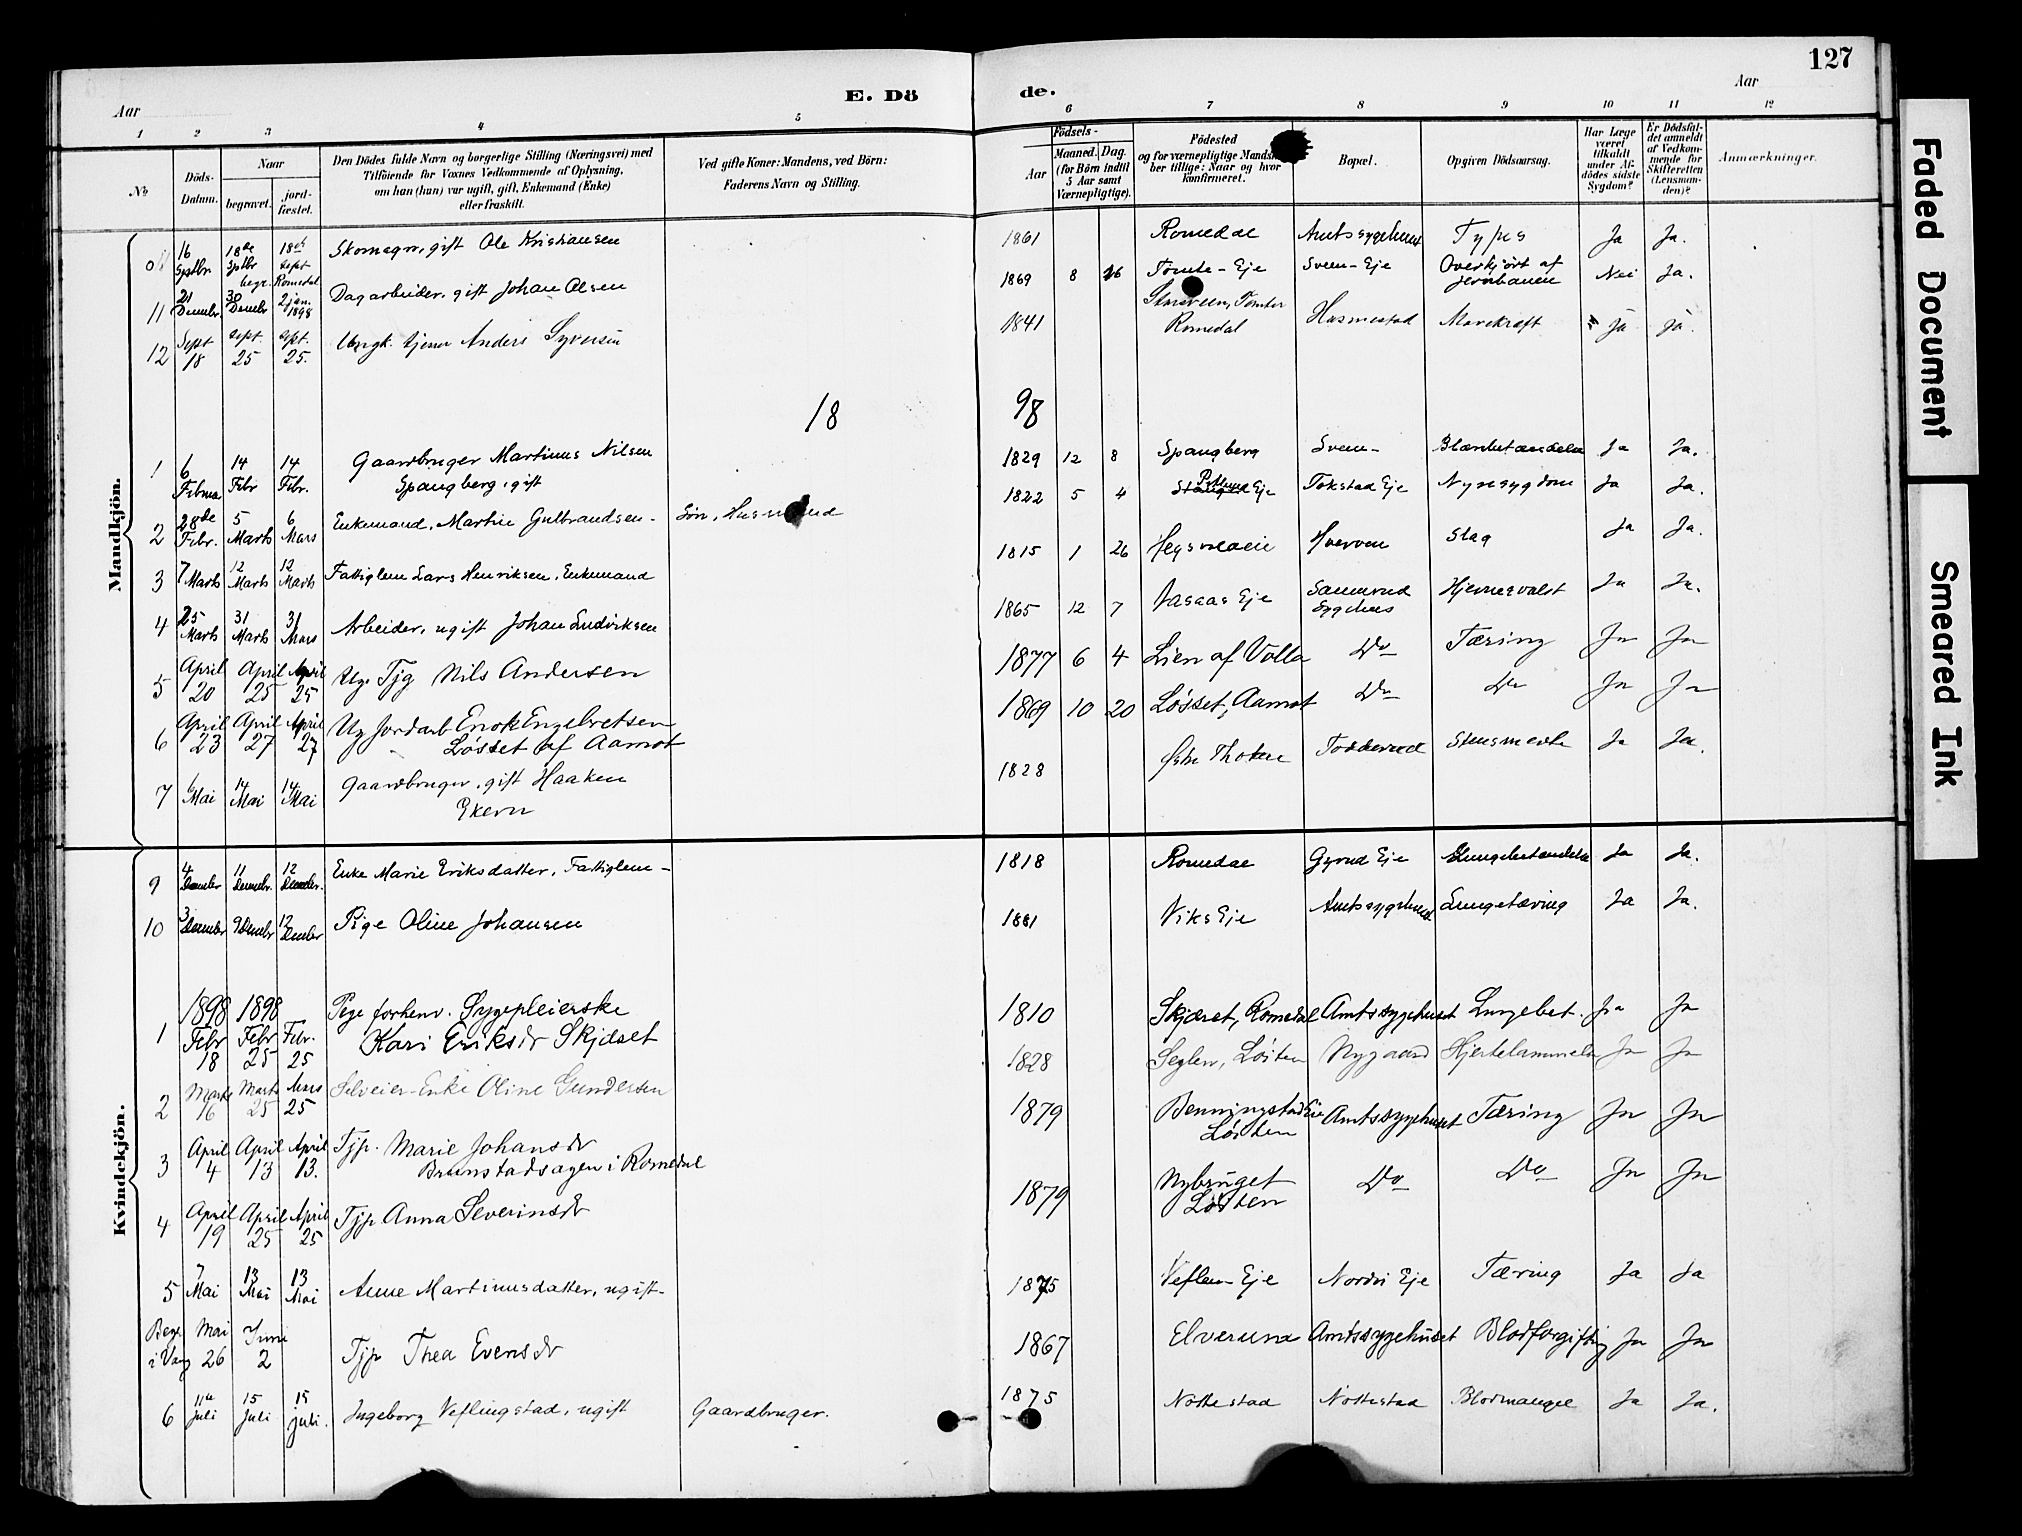 127
Aar
E. Dö
de.
Aar
1 2 3 4 5 6 7 8 9 10 11 12
No
Döds-Datum.
Naar
begravet.
jord-fæstet.
Den Dödes fulde Navn og borgerlige Stilling (Næringsvei) med
Tilföiende for Voxnes Vedkommende af Oplysning,
om han (hun) var ugift, gift, Enkemand (Enke)
eller fraskilt.
Ved gifte Koner: Mandens, ved Börn:
Faderens Navn og Stilling.
Födsels-
Aar
Maaned. Dag.
(for Börn indtil
5 Aar samt
Værnepligtige).
Födested
og for værnepligtige Mandsk
ber tillige: Naar og hvor
konfirmeret.
Bopæl.
Opgiven Dödsaarsag.
Har Læge
været
tilkaldt
under Af-
dödes sidste
Sygdom?
Er Dödsfal-
det anmeldt
af Vedkom-
mende for
Skifteretten
(Lensman-
den)?
Anmærkninger.
Mandkjön.
16 Sptbr 18de Sptbr 18de Sept Skomagr, gift Ole Kristiansen 1861 Romedal Amtssygehuset Typus Ja Ja.
begr. Romedal
11 21 Decmbr. 30 Decmbr 2 jan. 1898 Dagarbeider, gift Johan Olsen 1869 8 16 Tomte-Eje Sveen-Eje Overkjørt af jernbanen Nei Ja.
12 Sept 18 Sept. 25 Spt. 25. Ungk. tjener Anders Syversen 1841 Tomter Romedal Hasmestad Marekræft Ja Ja.
18 98
1 6 Februa 14 Febr 14 Febr. Gaardbruger Martinus Nilsen Spangberg, gift 1829 12 8 Spangberg Sveen- Blærebetændelse Ja Ja.
2 28de Febr. 5 Marts 6 Mars Enkemand, Martin Gulbrandsen- Søn, Husmand 1822 5 4 Eje Tokstad Eje Nyresygdom Ja Ja.
3 7 Marts 12 Marts 12 Marts Fattiglem Lars Henriksen, Enkemand 1815 1 26 Hverven Slag Ja Ja.
4 25 Marts 31 Marts 31 Mars Arbeider, ugift Johan Ludviksen 1865 12 7 Aasaas Eje Sanderud Sygehus Ja Ja.
5 April 20 April 25 April 25 Ug. Tjg Nils Andersen 1877 6 4 Lien af Volla Do Tæring Ja Ja
6 April 23 April 27 April 27 Ug Jordarb Enok Engebretsen Løsset af Aamot 1869 10 20 Løsset, Aamot Do Do Ja Ja
7 6 Mai 14 Mai 14 Mai Gaardbruger, gift Haaken Ekern 1828 Østre Thoten Todderud Stensmerte Ja Ja.
Kvindekjön.
9 4 Decmbr 11 Decmbr. 12 Decmbr. Enke Marie Eriksdatter, Fattiglem- 1818 Romedal Gyrud Eje Lungebetændelse Ja Ja.
10 3 Decmber 9 Decmbr 12 Decmbr Pige Oline Johansen 1881 Viks Eje Amtssygehuset Lungetæring Ja Ja.
1898 1898
1 Febr 18 Febr 25 Febr. 25 Pige forhenv. Sygepleierske Kari Eriksdr Skjæset 1810 Skjæset, Romedal Amtssygehuset Lungebet. Ja Ja
2 Marts 16 Marts 25 Mars 25 Selveier-Enke Oline Gundersen 1828 Seglen, Løiten Nygaard Hjertelammelse Ja Ja
3 April 4 April 13 April 13. Tjp. Marie Johansdr Brunstadsagen i Romedal 1879 Benningstad Eie Løiten Amtssygehuset Tæring Ja Ja
4 April 19 April 25 April 25 Tjp Anna Severinsdr 1879 Nybruget Løiten Do Do Ja Ja
5 7 Mai 13 Mai 13 Mai Anne Martinusdatter, ugift- 1875 Veflen-Eje Nordvi Eje Tæring Ja Ja
Begr. i Vang Mai 26 Juni 2 Tjp Thea Evensdr 1867 Elverum Amtssygehuset Blodforgiftng Ja Ja
6 11te Juli 15 Juli 15 juli. Ingeborg Veflingstad, ugift Gaardbruger. 1875 Nottestad Nottestad Blodmangel Ja Ja.
Faded Document
Smeared Ink